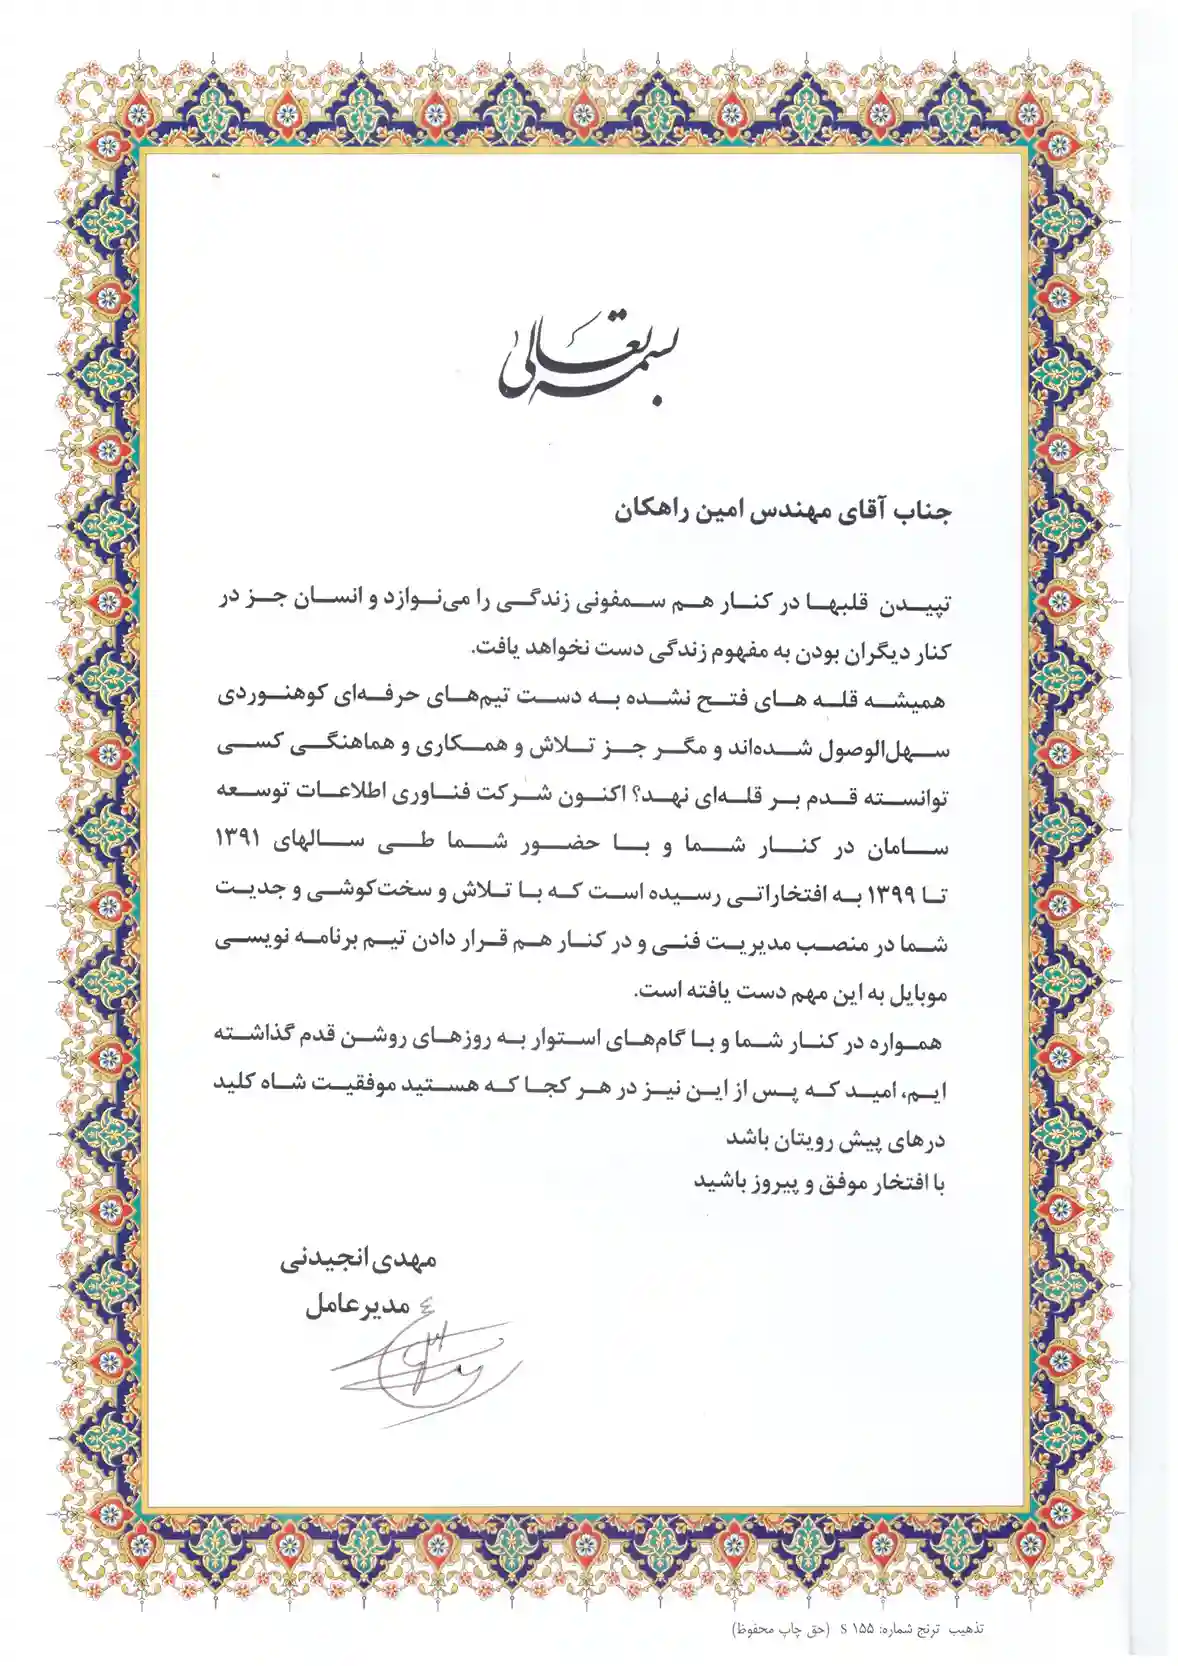 بسمه تعالی
جناب آقای مهندس امین راهکان
تپیدن قلبها در کنار هم سمفونی زندگی را می‌نوازد و انسان جز در
کنار دیگران بودن به مفهوم زندگی دست نخواهد یافت.
همیشه قله های فتح نشده به دست تیم‌های حرفه‌ای کوهنوردی
سهل‌الوصول شده‌اند و مگر جز تلاش و همکاری و هماهنگی کسی
توانسته قدم بر قله‌ای نهد؟ اکنون شرکت فناوری اطلاعات توسعه
سامان در کنار شما و با حضور شما طی سالهای ۱۳۹۱
تا ۱۳۹۹ به افتخاراتی رسیده است که با تلاش و سخت‌کوشی و جدیت
شما در منصب مدیریت فنی و در کنار هم قرار دادن تیم برنامه نویسی
موبایل به این مهم دست یافته است.
همواره در کنار شما و با گام‌های استوار به روزهای روشن قدم گذاشته
ایم، امید که پس از این نیز در هر کجا که هستید موفقیت شاه کلید
درهای پیش رویتان باشد
با افتخار موفق و پیروز باشید
مهدی انجیدنی
مدیرعامل
تذهیب ترنج شماره: S ۱۵۵ (حق چاپ محفوظ)